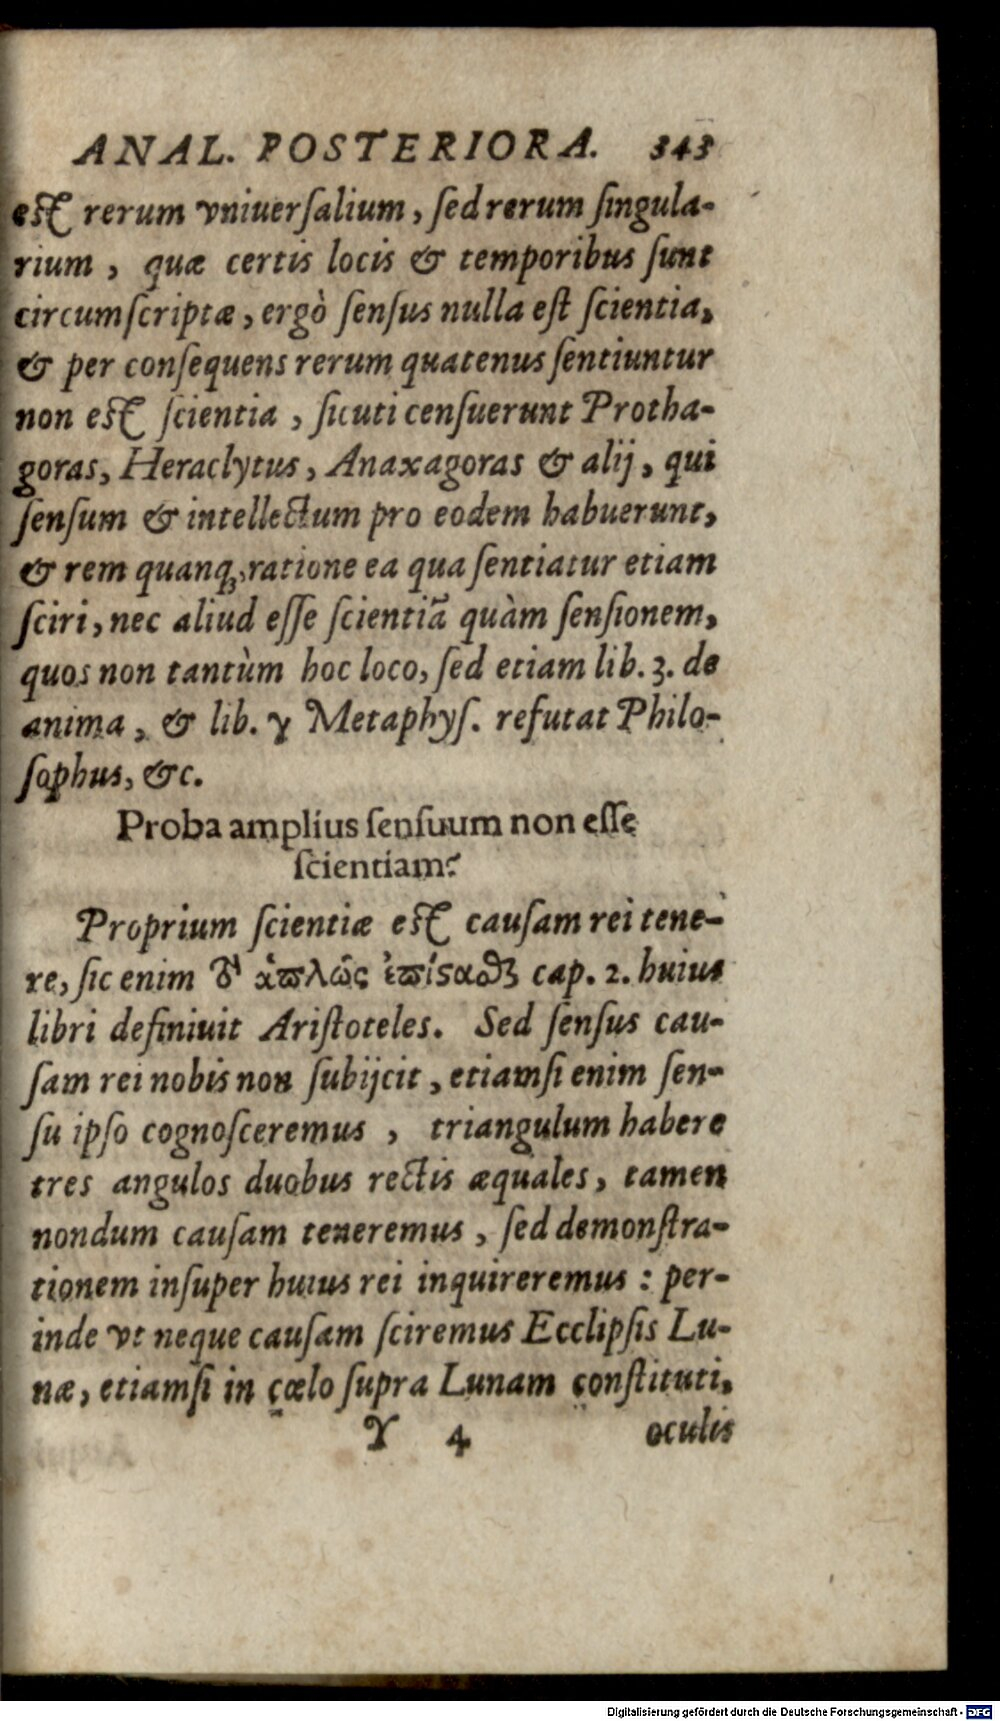 ANAL. POSTERIORA. 343
est rerum vniuerſalium, ſed rerum ſingula-
rium, quæ certis locis & temporibus ſunt
circumſcriptæ, ergò ſenſus nulla eſt ſcientia,
& per conſequens rerum quatenus ſentiuntur
non eſt ſcientia, ſicuti cenſuerunt Protha-
goras, Heraclytus, Anaxagoras & alij, qui
ſenſum & intellectum pro eodem habuerunt,
& rem quanq; ratione ea qua ſentiatur etiam
ſciri, nec aliud eſſe ſcientiã quàm ſenſionem,
quos non tantùm hoc loco, ſed etiam lib. 3. de
anima, & lib. γ Metaphyſ. refutat Philo-
ſophus, &c.
Proba amplius ſenſuum non eſſe
ſcientiam?
Proprium ſcientiæ eſt cauſam rei tene-
re, ſic enim τὸ ἁπλῶς ἐπίϛαϑαι cap. 2. huius
libri definiuit Ariſtoteles. Sed ſenſus cau-
ſam rei nobis non ſubijcit, etiamſi enim ſen-
ſu ipſo cognoſceremus, triangulum habere
tres angulos duobus rectis æquales, tamen
nondum cauſam teneremus, ſed demonſtra-
tionem inſuper huius rei inquireremus: per-
inde vt neque cauſam ſciremus Ecclipſis Lu-
næ, etiamſi in cœlo ſupra Lunam conſtituti,
Y 4 oculis
Digitalisierung gefördert durch die Deutsche Forschungsgemeinschaft - DFG